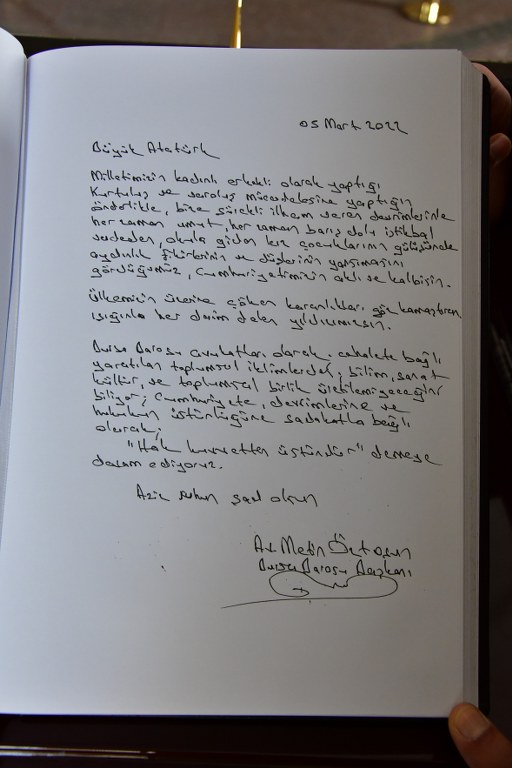 05 Mart 2022
Büyük Atatürk
Milletimizin kadınlı erkekli olarak yaptığı
Kurtuluş ve varoluş mücadelesine yaptığın
önderlikle, bize sürekli ilham veren devrimlerinle
her zaman umut, her zaman barış dolu istikbal
vadeden, okula giden kız çocuklarının gülüşünde
aydınlık fikirlerinin ve düşlerinin yansımasını
gördüğümüz, Cumhuriyetimizin aklı ve kalbisin.
Ülkemizin üzerine çöken karanlıkları göz kamaştıran
ışığınla her daim delen yıldızımızsın.
Bursa Barosu avukatları olarak, cehalete bağlı
yaratılan toplumsal iklimlerde; bilim, sanat
kültür, ve toplumsal birlik üretilemiyeceğini
biliyor; Cumhuriyete, devrimlerine ve
hukukun üstünlüğüne sadakatla bağlı
olarak;
"Hak kuvvetten üstündür" demeye
devam ediyoruz.
Aziz ruhun şad olsun
Av. Metin Öztosun
Bursa Barosu Başkanı